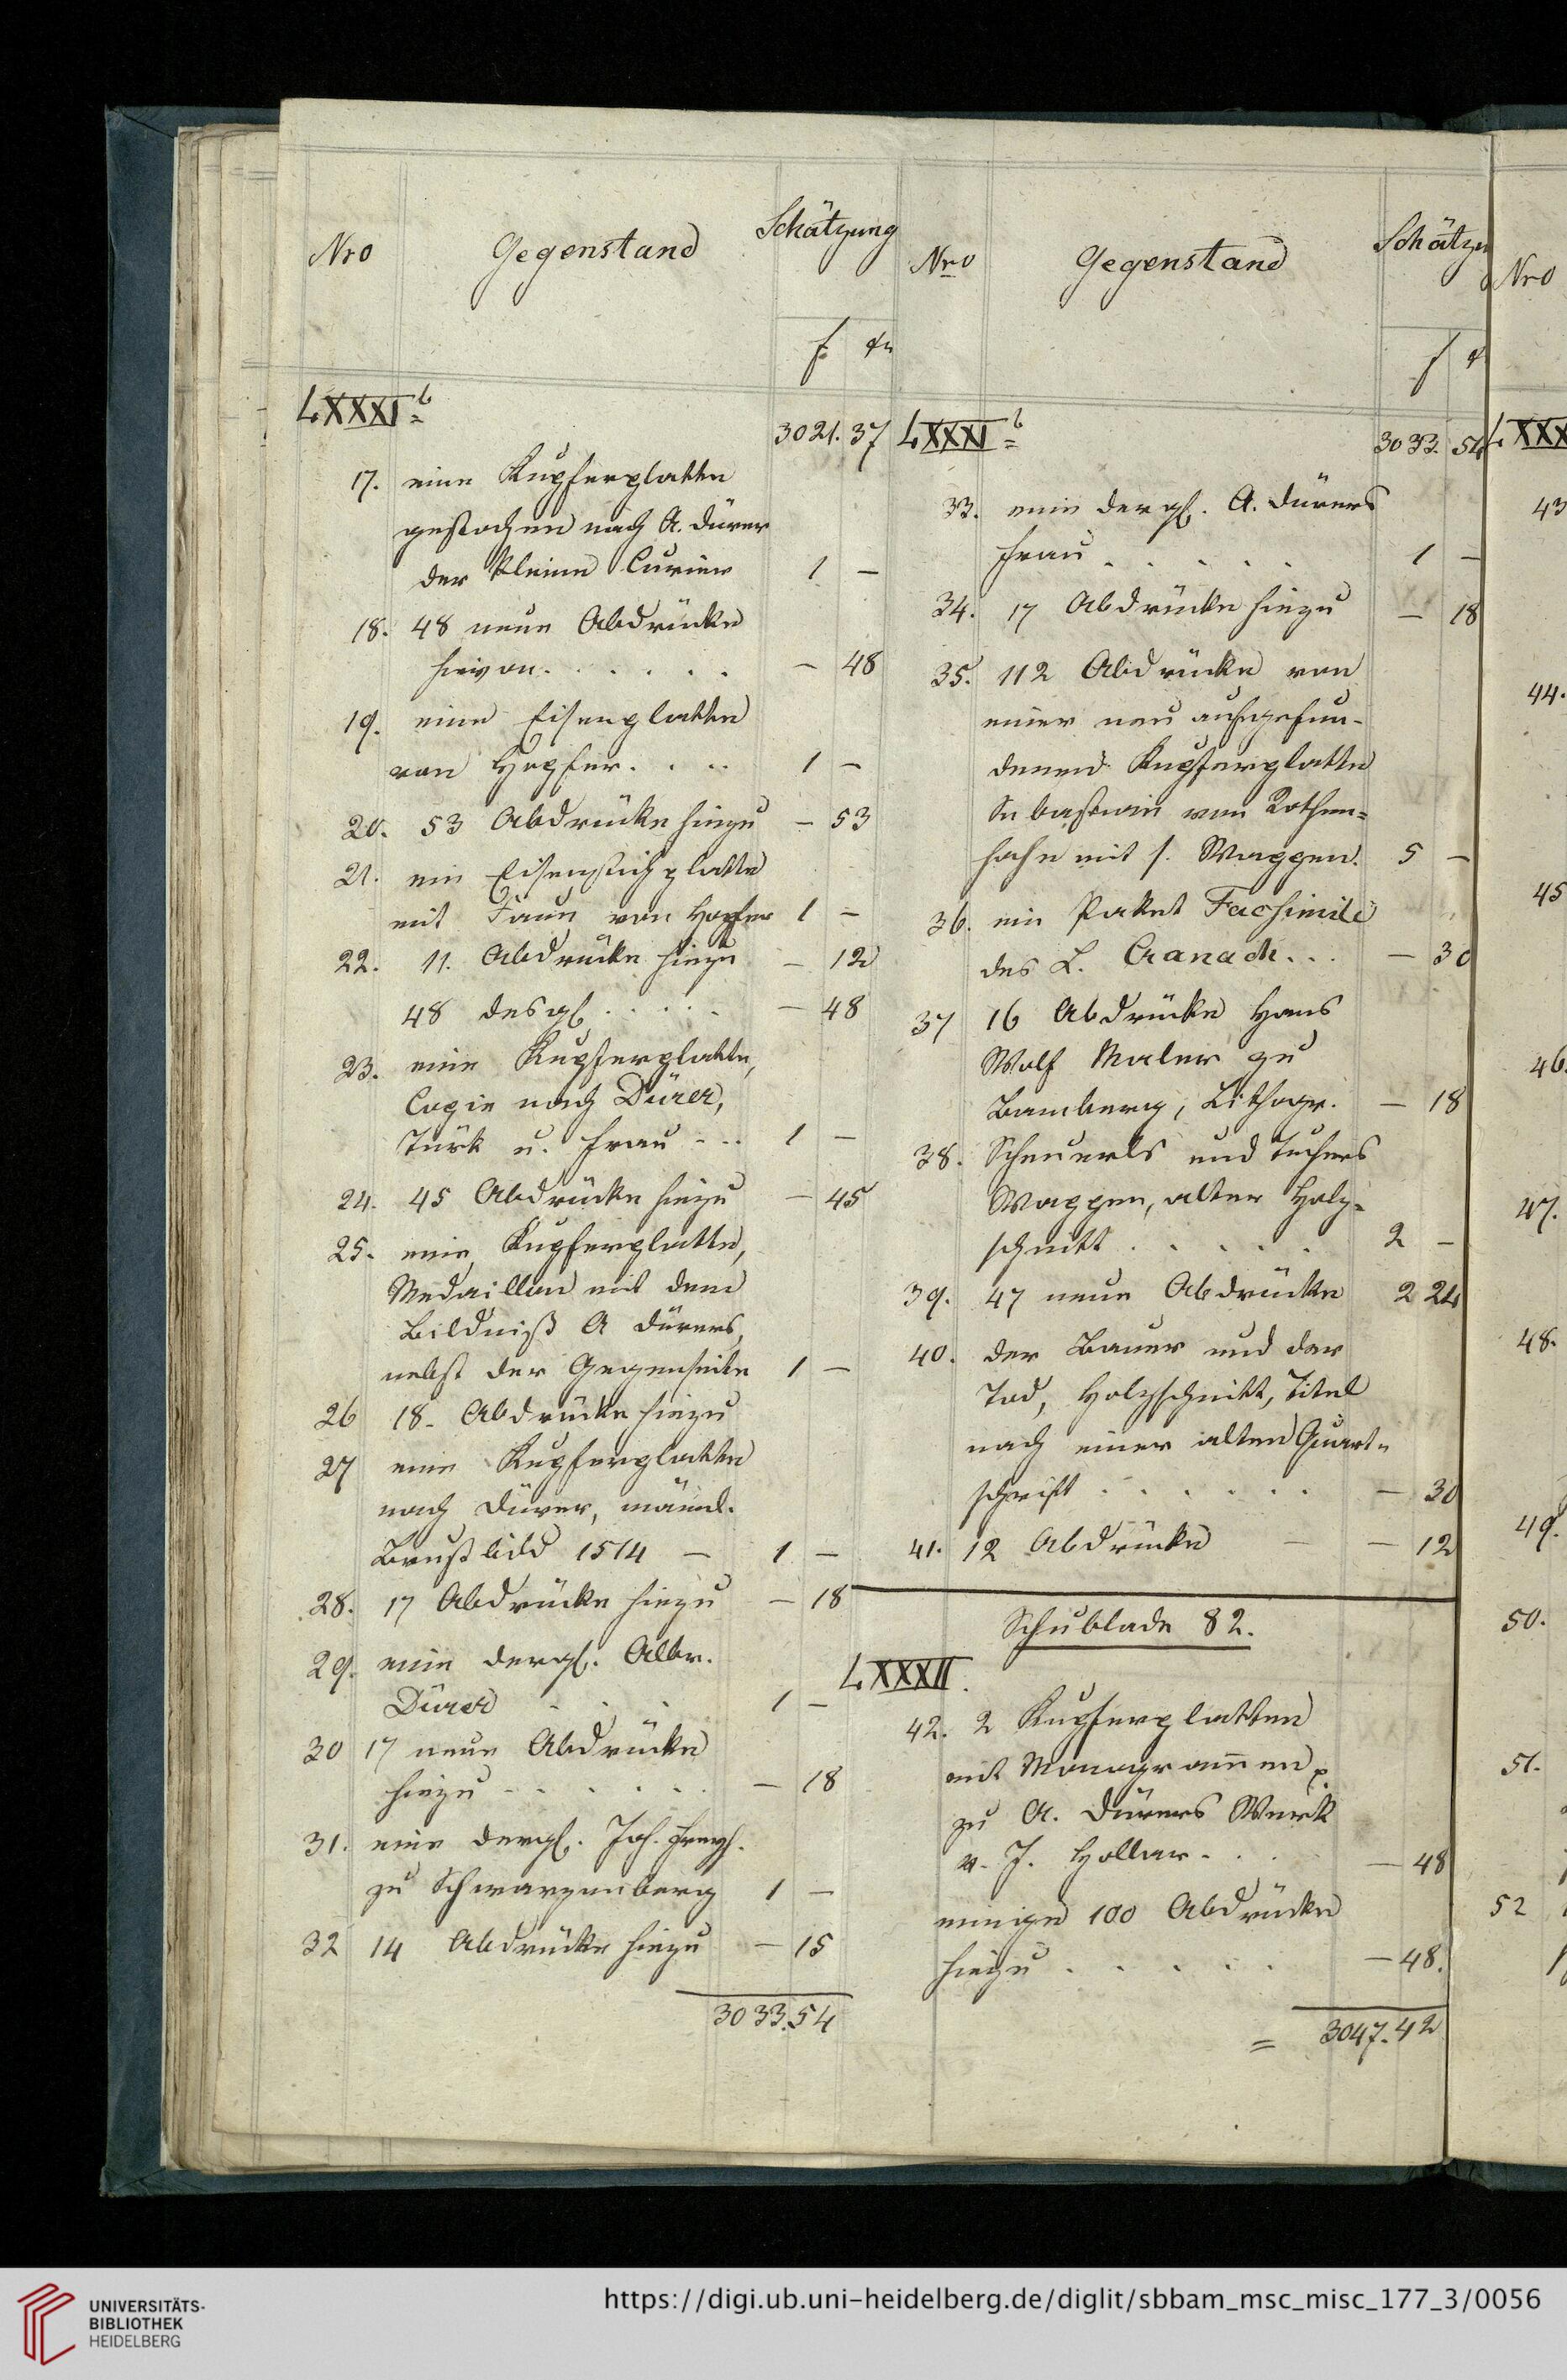 Nro Gegenstand Schätzung
f xr
LXXXI b
3021. 37
17. eine Kupferplatte
gestochen nach A. Dürer
der kleine Curier 1 –
18. 48 neue Abdrücke
hievon . . . . . . – 48
19. eine Eisenplatte
von Hopfer . . . . 1 –
20. 53 Abdrücke hiezu – 53
21. ein Eisenstichplatte
mit Faun von Hopfer 1 –
22. 11. Abdrücke hiezu – 12
48 desgl. . . . . . – 48
23. eine Kupferplatte,
Copie nach Dürer,
Türk u. Frau - - - 1 –
24. 45 Abdrücke hiezu – 45
25. eine Kupferplatte,
Medaillon mit dem
Bildniß A Dürers,
nebst der Gegenseite 1 –
26 18. Abdrücke hiezu
27 eine Kupferplatte
nach Dürer, männl.
Brustbild 1514 – 1 –
28. 17 Abdrücke hiezu – 18
29. eine dergl. Albr.
Dürer . . . 1 –
30 17 neue Abdrücke
hiezu - - - - - - – 18
31. eine dergl. Joh. Freyh.
zu Schwarzenberg 1 –
32 14 Abdrücke hiezu – 15
3033.54
Nro Gegenstand Schätzun
f x
LXXXI b
3033. 54
33. eine dergl. A. Dürers
Frau . . . . . 1 –
34. 17 Abdrücke hiezu – 18
35. 112 Abdrücke von
einer neu aufgefun-
denen Kupferplatte
Sebastian von Rothen=
hahn mit s. Wappen. 5 –
36. ein Paket Facsimile
des L. Cranach . . . – 30
37 16 Abdrücke Hans
Wolf Maler zu
Bamberg, Lithogr. – 18
38. Scheuerls und Tuchers
Wappen, alter Holz=
schnitt . . . . . 2 –
39. 47 neue Abdrücke 2 24
40. der Bauer und der
Tod, Holzschnitt, Titel
nach einer alten Quart=
schrift . . . . . . – 30
41. 12 Abdrücke – – 12
Schublade 82.
LXXXII.
42. 2 Kupferplatten
mit Monogrammen
zu A. Dürers Werk
v. J. Hollar . . . – 48
einige 100 Abdrücke
hiezu . . . . . – 48.
= 3047.42
Nro
LXXX
43
44.
45
46.
47.
48.
49.
50.
51.
52
UNIVERSITÄTS-
BIBLIOTHEK
HEIDELBERG
https://digi.ub.uni-heidelberg.de/diglit/sbbam_msc_misc_177_3/0056